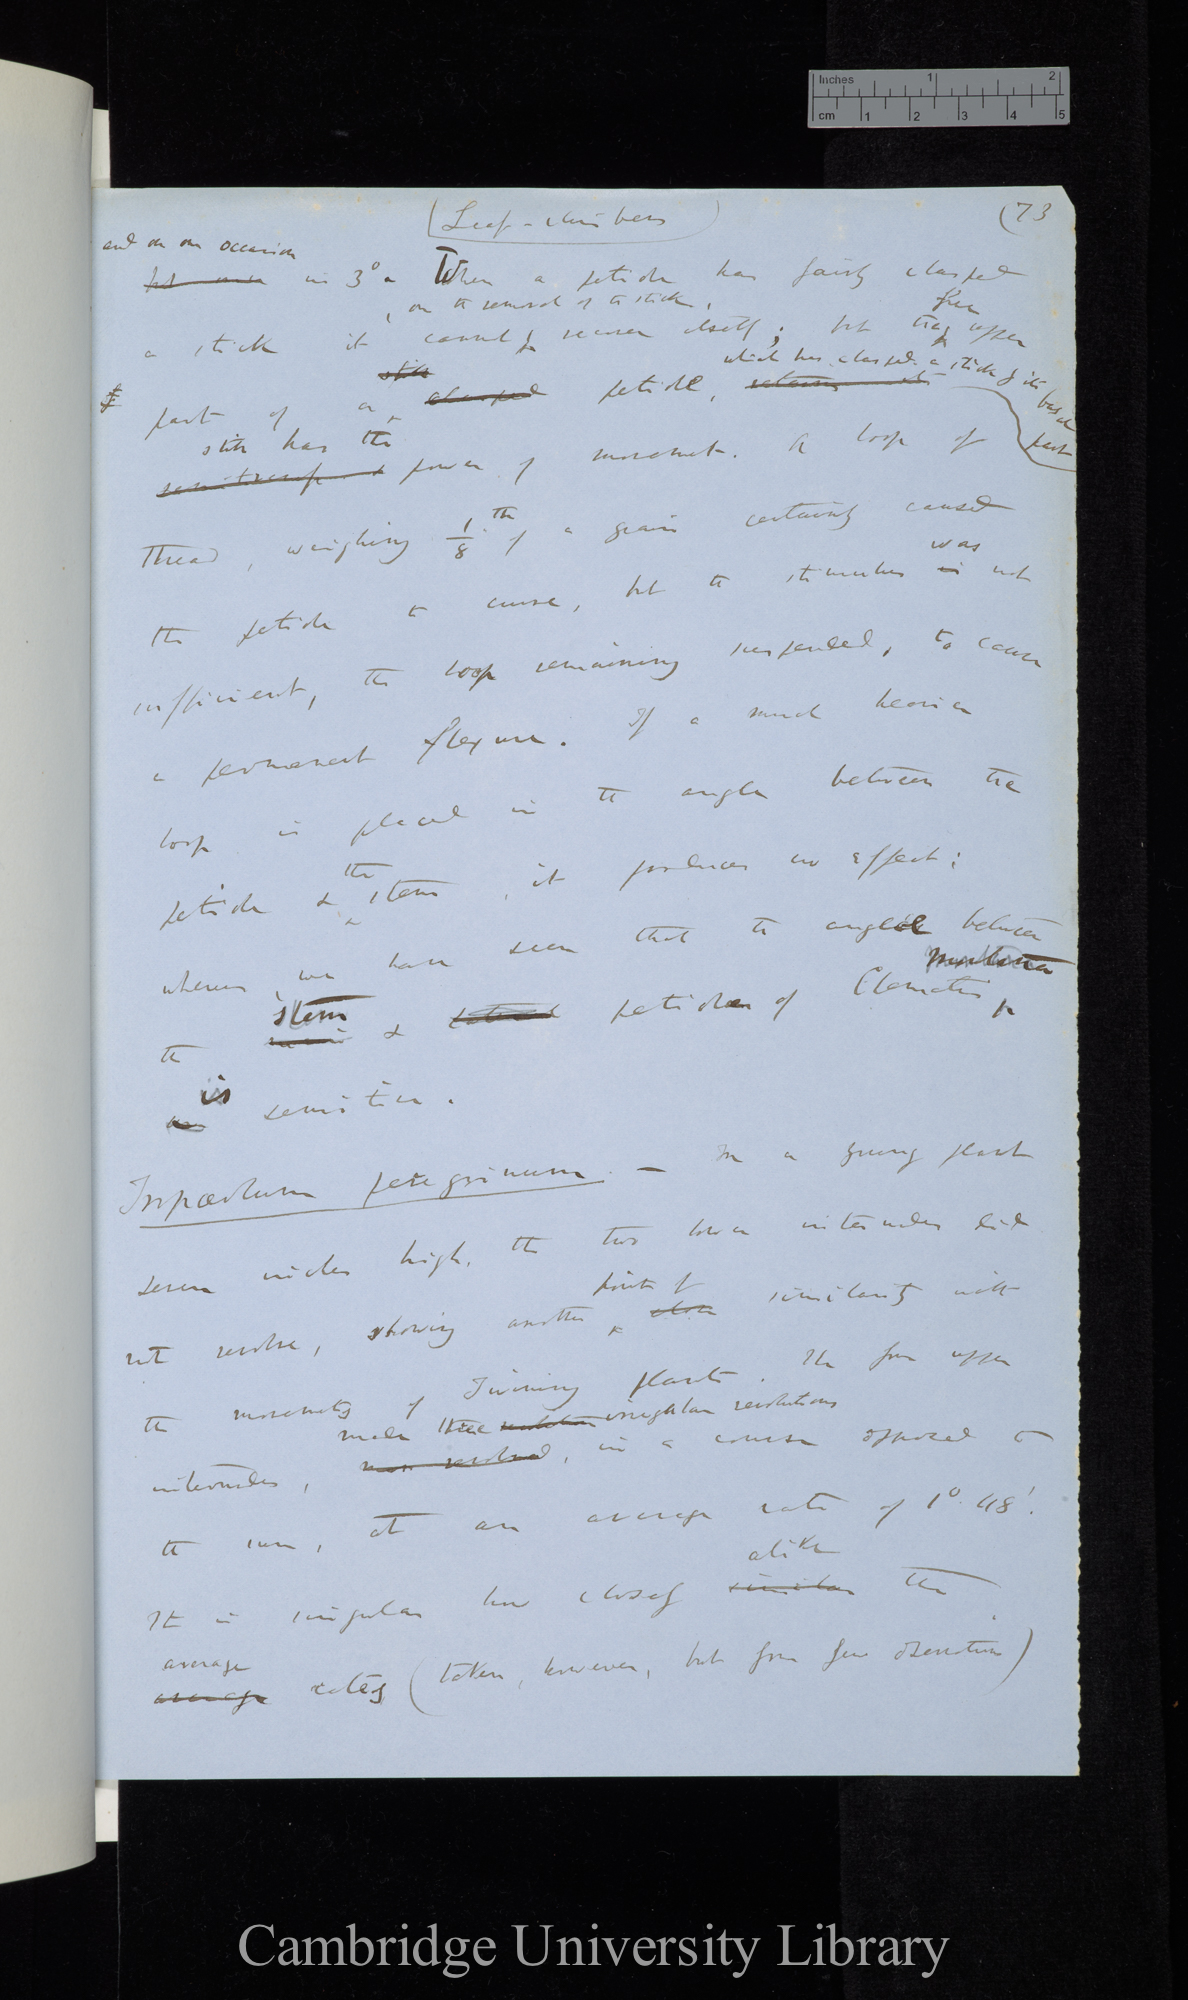 Inches 1 2
cm 1 2 3 4 5
(Leaf-climbers) (73
and on one occasion
but once in 3° a When a petiole has fairly clasped
, on the removal of the stick,
free
a stick it cannot recover itself; but the upper
still
which has clasped a stick by its basal part
part of a clasped petiole, retains its
still has the
sensitiveness & power of movement. A loop of
thread, weighing 1/8th of a grain certainly caused
was
the petiole to curve, but the stimulus is not
sufficient, the loop remaining suspended, to cause
a permanent flexure. If a much heavier
loop is placed in the angle between the
the
petiole & stem, it produces no effect;
whereas we have seen that the angle between
montana
stem
the main & petioles of Clematis
is
sensitive.
Tropæolum peregrinum. — In a young plant
seven inches high, the two lower internodes did
points of
not revolve, showing another close similarity with
the movements of Twining plants. The four upper
made three revolutions irregular revolutions
internodes, in a course opposed to
the sun, at an average rate of 1°. 48'.
alike
It is singular how closely similar the
average
average rates (taken, however, but from few observations)
Cambridge University Library